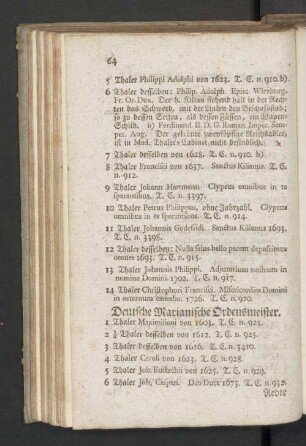 64
5 Thaler Philippi Adolphi von 1623. T. C. n. 910. b).
6 Thaler desselben: Philip. Adolph. Episc. Wirzburg.
Fr. Or. Dux. Der h. Kilian stehend hält in der Rech-
ten das Schwerd, mit der Linken den Bischofsstab;
so zu dessen Seiten, als dessen Füssen, ein Wapen-
Schild. b) Ferdinand. II. D. G. Roman. Imper. Sem-
per. Aug. Der gekrönte zweyköpfige Reichsadler,
ist in Mad. Thaler-Cabinet nicht befindlich.
7 Thaler desselben von 1628. T. C. n. 910. b)
8 Thaler Francisci von 1637. Sanctus Kilianus. T. C.
n. 912.
9 Thaler Johann Hartmann Clypeus omnibus in te
sperantibus. T. C. n. 3397.
10 Thaler Petrus Philippus, ohne Jahrzahl. Clypeus
omnibus in te sperantibus. T. C. n. 914.
11 Thaler Johannis Godefridi. Sanctus Kilianus 1693.
T. C. n. 3398.
12 Thaler desselben: Nulla salus bello pacem deposcimus
omnes 1693. T. C. n. 915.
13 Thaler Johannis Philippi. Adjutorium nostrum in
nomine Domini. 1702. T. C. n. 917.
14 Thaler Christophori Francisci. Misericordias Domini
in aeternum cantabo. 1726. T. C. n. 920.
Deutsche Marianische Ordensmeister.
1 Thaler Maximiliani von 1603. T. C. n. 925.
2 Thaler desselben von 1612. T. C. n. 925.
3 Thaler desselben von 1616. T. C. n. 3410.
4 Thaler Caroli von 1623. T. C. n. 928.
5 Thaler Joh. Eustachii von 1625. T. C. n. 929.
6 Thaler Joh. Caspari. Deo Duce 1673. T. C. n. 932.